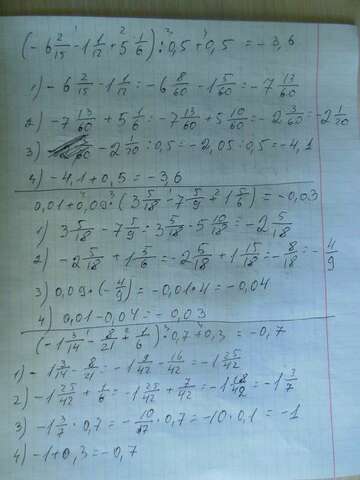 (-6 2/15 - 1 1/12 + 5 1/6) : 0,5 + 0,5 = -3,6
1) -6 2/15 - 1 1/12 = -6 8/60 - 1 5/60 = -7 13/60
2) -7 13/60 + 5 1/6 = -7 13/60 + 5 10/60 = -2 3/60 = -2 1/20
3) -2 1/20 : 0,5 = -2,05 : 0,5 = -4,1
4) -4,1 + 0,5 = -3,6
0,01 + 0,09 : (3 5/18 - 7 5/9 + 1 5/6) = -0,03
1) 3 5/18 - 7 5/9 = 3 5/18 - 5 10/18 = -2 5/18
2) -2 5/18 + 1 5/6 = -2 5/18 + 1 15/18 = -8/18 = -4/9
3) 0,09 * (-4/9) = -0,01 * 4 = -0,04
4) 0,01 - 0,04 = -0,03
(-1 3/14 - 8/21 + 1/6) : 0,7 + 0,3 = -0,7
1) -1 3/14 - 8/21 = -1 9/42 - 16/42 = -1 25/42
2) -1 25/42 + 1/6 = -1 25/42 + 7/42 = -1 18/42 = -1 3/7
3) -1 3/7 · 0,7 = -10/7 · 0,7 = -10 · 0,1 = -1
4) -1 + 0,3 = -0,7